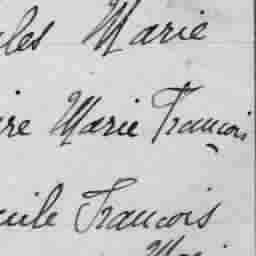 les Marie
ire Marie François
cile Francois